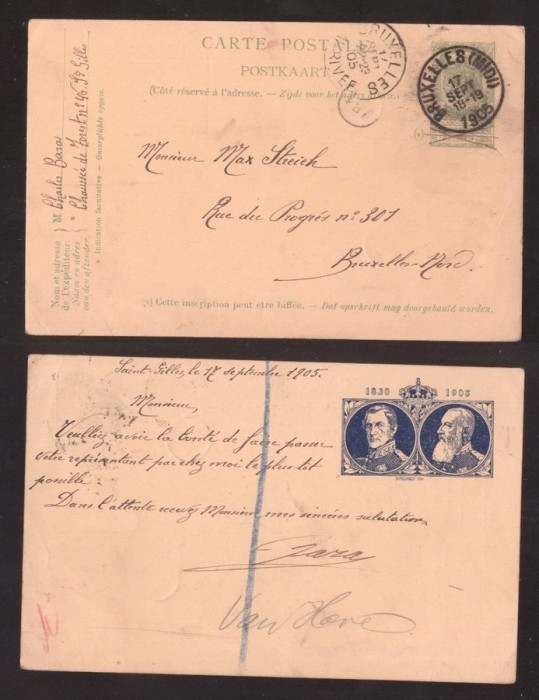 CARTE POSTALE
POSTKAART
(Côté réservé à l'adresse. — Zijde voor het adres
BRUXELLES
17
SEPT
1905
BRUXELLES (MIDI)
17
SEPT
18-19
1905
Monsieur Max Streich
Rue du Progrès n° 301
Bruxelles-Nord.
Nom et adresse
de l'expéditeur.
Naam en adres
van den afzender.
M Charles Baras
Chaussée de Forest n° 46 St Gilles
* Indication facultative — Onverplichte opgave.
Cette inscription peut être biffée. — Dat opschrift mag doorgehaald worden.
Saint Gilles, le 17 septembre 1905.
Monsieur,
Veuillez avoir la bonté de faire passer
votre représentant par chez moi le plus tôt
possible.
Dans l'attente recevez Monsieur mes sincères salutations
Van Hove
1830 1905